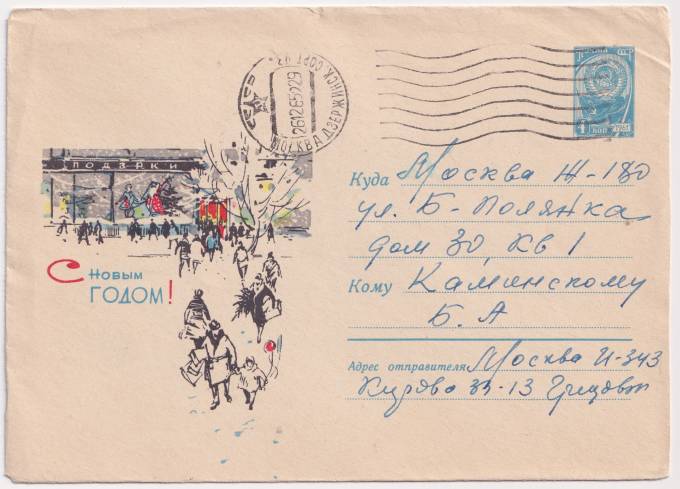 ПОДАРКИ
С Новым
годом!
МОСКВА ДЗЕРЖИНСК. СОРТ УЗ.
26126522
4 КОП 1961
Куда Москва Ж-180
ул. Б-Полянка
дом 30, кв 1
Кому Каминскому
Б. А
Адрес отправителя Москва И-343
33-13